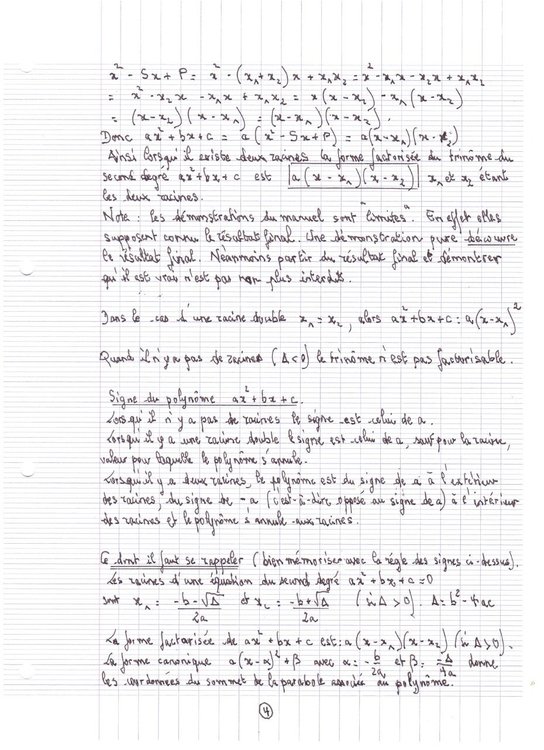 x² - Sx + P = x² - (x₁+x₂)x + x₁x₂ = x² - x₁x - x₂x + x₁x₂
= x² - x₂x - x₁x + x₁x₂ = x(x - x₂) - x₁(x - x₂)
= (x - x₂)(x - x₁) = (x - x₁)(x - x₂).
Donc ax² + bx + c = a(x² - Sx + P) = a(x - x₁)(x - x₂)
Ainsi lorsqu'il existe deux racines la forme factorisée du trinôme du
second degré ax² + bx + c est a(x - x₁)(x - x₂) x₁ et x₂ étant
les deux racines.
Note : les démonstrations du manuel sont "limites". En effet elles
supposent connu le résultat final. Une démonstration pure découvre
le résultat final. Néanmoins partir du résultat final et démontrer
qu'il est vrai n'est pas non plus interdit.
Dans le cas d'une racine double x₁ = x₂, alors ax² + bx + c = a(x - x₁)²
Quand il n'y a pas de racines (Δ < 0) le trinôme n'est pas factorisable.
Signe du polynôme ax² + bx + c.
Lorsqu'il n'y a pas de racines le signe est celui de a.
Lorsqu'il y a une racine double le signe est celui de a, sauf pour la racine,
valeur pour laquelle le polynôme s'annule.
Lorsqu'il y a deux racines, le polynôme est du signe de a à l'extérieur
des racines, du signe de -a (c'est-à-dire opposé au signe de a) à l'intérieur
des racines et le polynôme s'annule aux racines.
Ce dont il faut se rappeler (bien mémoriser avec la règle des signes ci-dessus).
Les racines d'une équation du second degré ax² + bx + c = 0
sont x₁ = (-b - √Δ)/2a et x₂ = (-b + √Δ)/2a (si Δ > 0). Δ = b² - 4ac
La forme factorisée de ax² + bx + c est : a(x - x₁)(x - x₂) (si Δ > 0).
La forme canonique a(x - α)² + β avec α = -b/2a et β = -Δ/4a donne
les coordonnées du sommet de la parabole associée au polynôme.
4